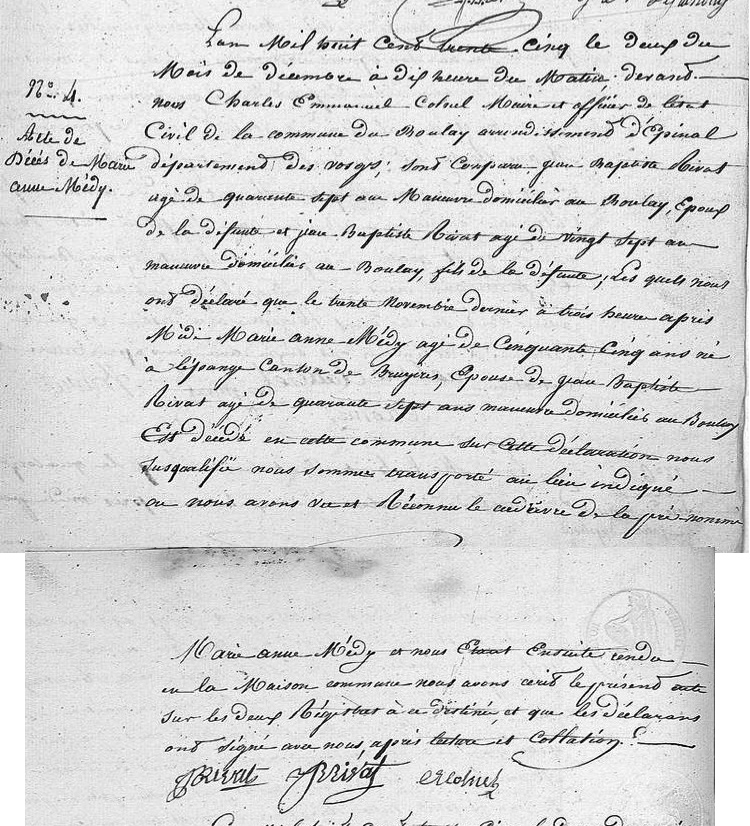 L'an Mil huit Cent trente Cinq le deux du
Mois de decembre à dix heure du Matin devant
nous Charles Emmanuel Colnel Maire et officier de l'état
N.o 4.
Acte de
Décès de Marie
anne Médy.
Civil de la commune du Boulay arrondissement d'Epinal
département des vosges; sont Comparu jean Baptiste Rivat
agé de quarente sept ans Manuvre domicilié au Boulay, Epoux
de la défunte et jean Baptiste Rivat agé de vingt sept ans
manuvre domicilié au Boulay, fils de la défunte; Les quels nous
ont déclaré que le trente Novembre dernier à trois heure après
Midi Marie anne Médy agé de Cinquante Cinq ans né
à lépange Canton de Bruyeres Epouse de jean Baptiste
Rivat agé de quarante sept ans manuvre domicilié au Boulay
Est décédé en cette commune sur Cette déclaration nous
susqualifié nous sommes transporté au lieu indiqué
ou nous avons vu et Réconnu le cadavre de la pré nommé
Marie anne Médy et nous Etant Ensuite rendu
en la Maison commune nous avons écrit le présent acte
sur les deux Régistres à ce destiné, et que les déclarans
ont signé avec nous, après lecture et Collation
JBRivat JBRivat CEColnel